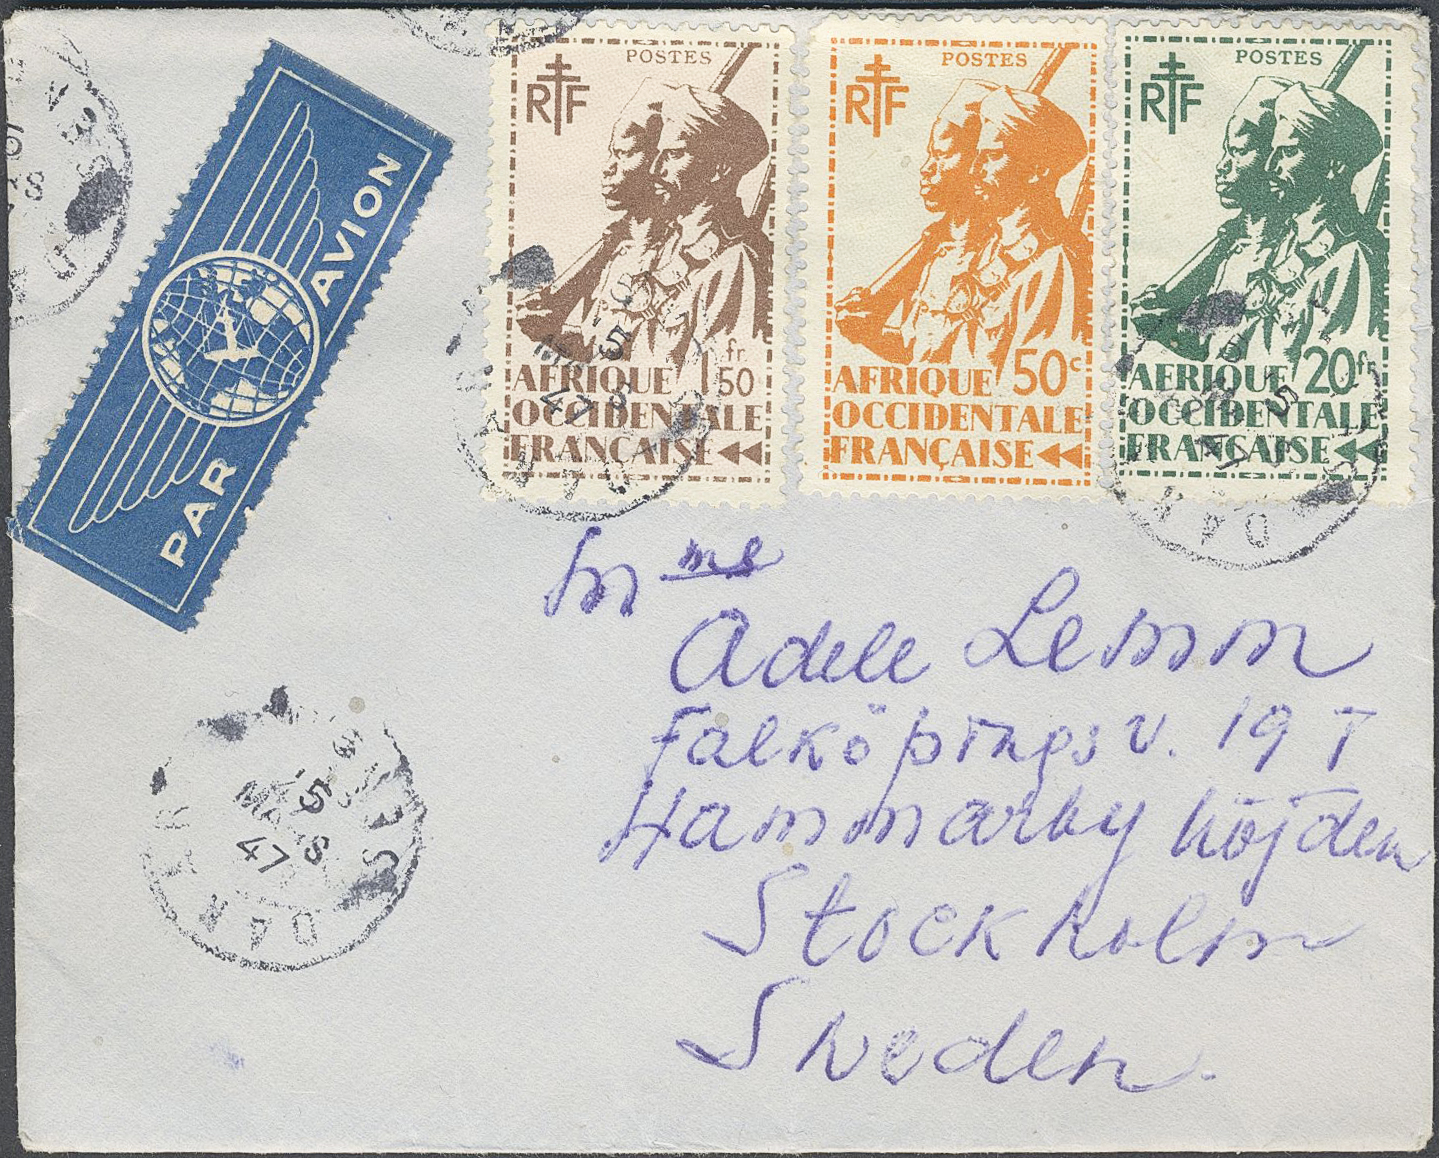 PAR AVION
POSTES
RF
1fr50
AFRIQUE
OCCIDENTALE
FRANÇAISE
POSTES
RF
50c
AFRIQUE
OCCIDENTALE
FRANÇAISE
POSTES
RF
20fr
AFRIQUE
OCCIDENTALE
FRANÇAISE
Mme
Adele Lemm
Falköpingsv. 19 I
Hammarby höjden
Stockholm
Sweden.
DAKAR
5
MARS
47